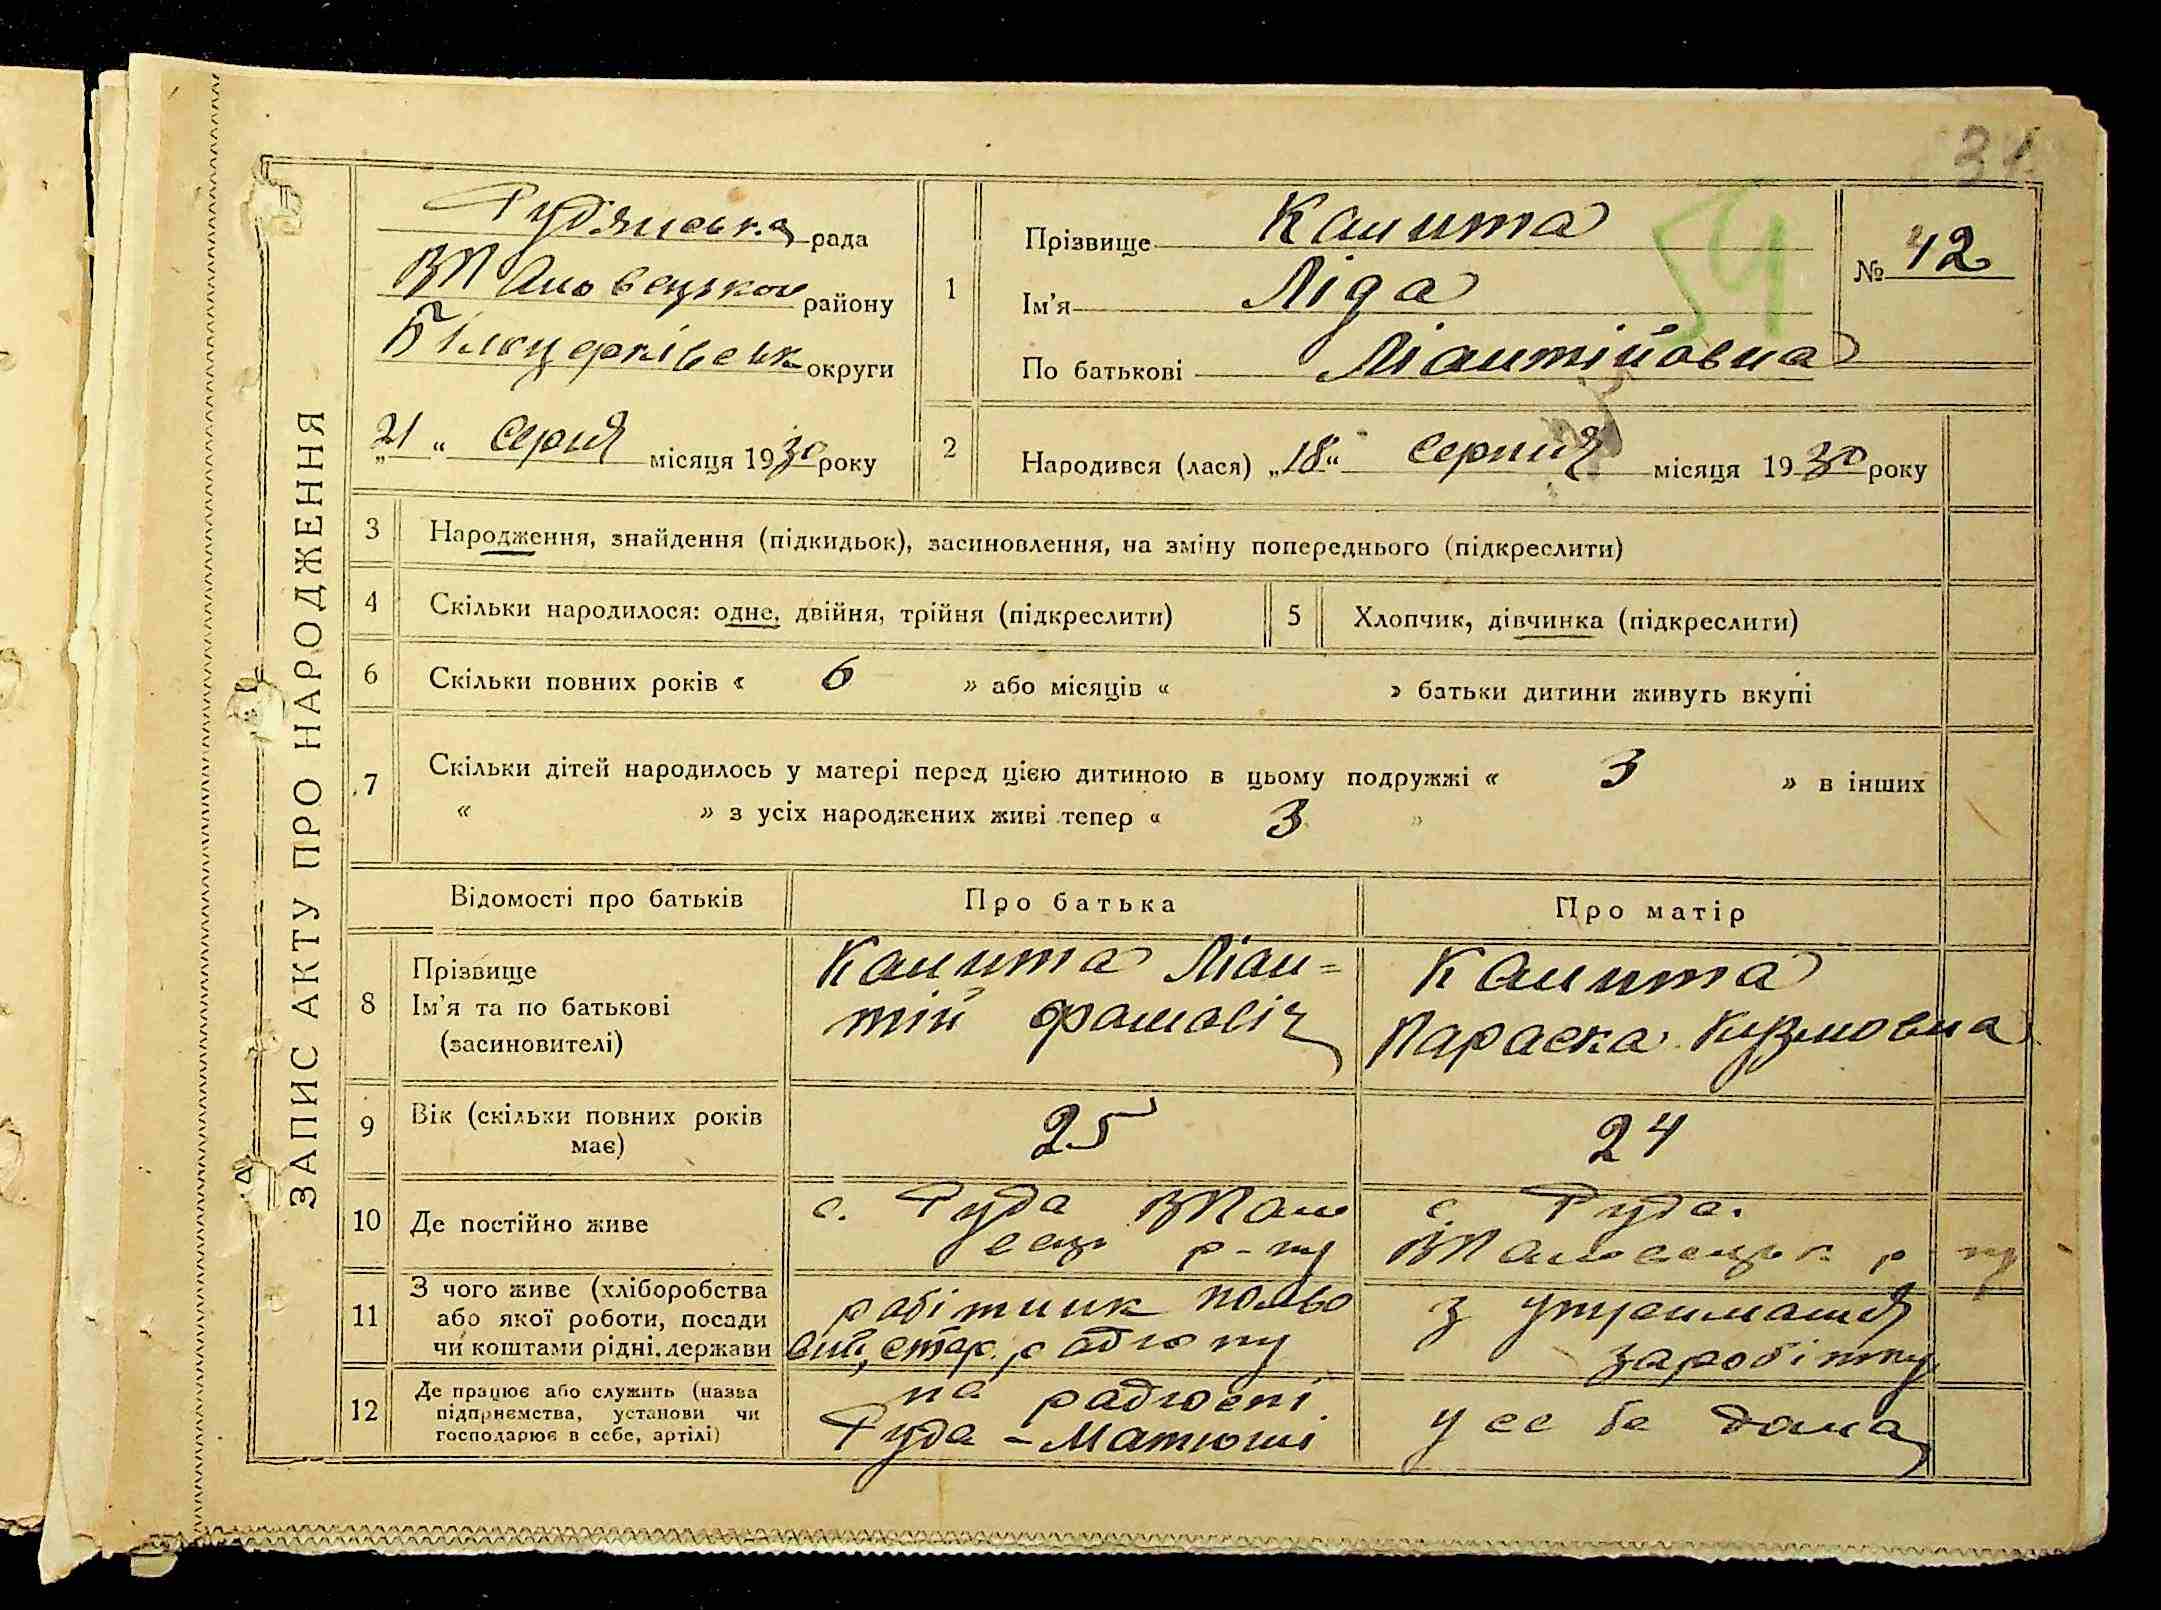 34
ЗАПИС АКТУ ПРО НАРОДЖЕННЯ
Рудянська рада
району
Білоцерківськ округи
„21“ серпя місяця 1930 року
1
Прізвище Калита
Ім'я Ліда
По батькові Ліантійовна
№ 42
2
Народився (лася) „18“ серпня місяця 1930 року
3 Народження, знайдення (підкидьок), засиновлення, на зміну попереднього (підкреслити)
4 Скільки народилося: одне, двійня, трійня (підкреслити)
5 Хлопчик, дівчинка (підкреслити)
6 Скільки повних років « 6 » або місяців « » батьки дитини живуть вкупі
7 Скільки дітей народилось у матері перед цією дитиною в цьому подружжі « 3 » в інших
« » з усіх народжених живі тепер « 3 »
Відомості про батьків
Про батька
Про матір
8 Прізвище
Ім'я та по батькові
(засиновителі)
Калита Ліан=
тій
Калита
Параска Кузмовна
9 Вік (скільки повних років
має)
25
24
10 Де постійно живе
с. Руда
р-ну
с Руда.
р ну
11 З чого живе (хліборобства
або якої роботи, посади
чи коштами рідні, держави
робітник польо
вий,
з утримання
заробітку
12 Де працює або служить (назва
підприємства, установи чи
господарює в себе, артілі)
на радгоспі
Руда-Матюші
у себе дома